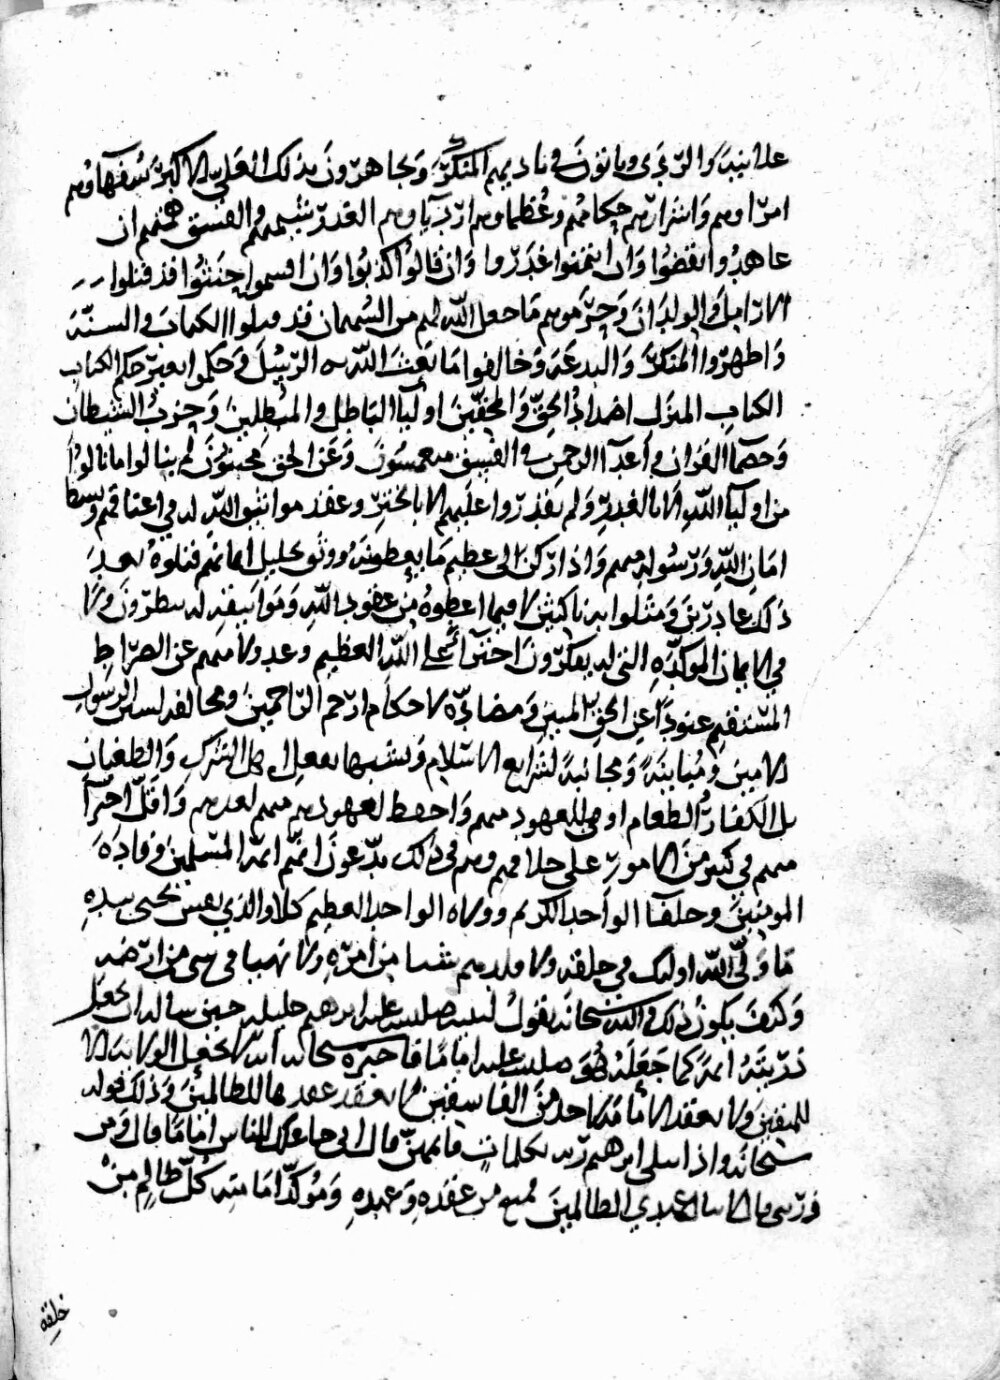 علانية والردى ويأتون في ناديهم المنكر وتجاهرون بذلك العلي الاكبر سفهاؤهم
امراؤهم واشرارهم حكامهم وعظماؤهم اردياؤهم الغدر شيمهم والفسق همتهم ان
عاهدوا نقضوا وان ائتمنوا غدروا وان قالوا كذبوا وان اقسموا حنثوا قد قتلوا
الارامل والولدان وحرموهم ما جعل الله لهم من السهمان قد قتلوا الكتاب والسنة
واظهروا المنكر والبدعة وخالفوا ما بعث الله به الرسل وحكموا بغير حكم الكتاب
الكتاب المنزل اضداد الحق والمحقين اولياء الباطل والمبطلين وحزب الشيطان
وخصماء القرآن واعداء الرحمن في الفسق منغمسون وعن الحق مجنبون لم ينالوا ما نالوا
من اولياء الله الا بالغدر ولم يقدروا عليهم الا بالختر وعقد مواثيق الله له في اعناقهم وبسط
امان الله ورسوله منهم واذا ركن الى عظيم ما يعطونه ووثق بجليل ايمانهم قتلوه بعد
ذلك غادرين ومثلوا به ناكثين لا فيما اعطوه من عقود الله ومواثيقه له ينظرون ولا
في الايمان الموكدة التي له يفكرون اجتراء على الله العظيم وعدولا منهم عن الصراط
المستقيم عنودا عن الحق المبين ومضادة لاحكام ارحم الراحمين ومخالفة لسنن الرسول
الامين ومباينة ومجانبة لشرايع الاسلام وتشبها بفعل اهل الشرك والطغيان
بل الكفار الطغام اوفى للعهود منهم واحفظ لعهودهم منهم لعدهم واقل اجتراء
منهم في كثير من الامور على خلافهم وهم في ذلك يدعون انهم ائمة المسلمين وقادة
المومنين وخلفاء الواحد الكريم وولاه الواحد العظيم كلا والذي نفس يحيى بيده
ما ولى الله اولئك في خلقه ولا قلدهم شيئا من امره ولا نهيا في شي من ارضه
وكيف يكون ذلك والله سبحانه يقول لنبيه صلى الله عليه ابرهيم خليله حين ساله ان يجعل
ذريته ائمة كما جعله هو صلى الله عليه اماما فاخبره سبحانه انه لا يجعل الولاية الا
للمتقين ولا يعقد الامامة لاحد من الفاسقين ولا يعقد عقدها للظالمين وذلك قوله
سبحانه واذ ابتلى ابرهيم ربه بكلمات فاتمهن قال اني جاعلك للناس اماما قال ومن
ذريتي قال لا ينال عهدي الظالمين فمنع من عقده وعهده ومؤكد امامته كل ظالم من
خلقه